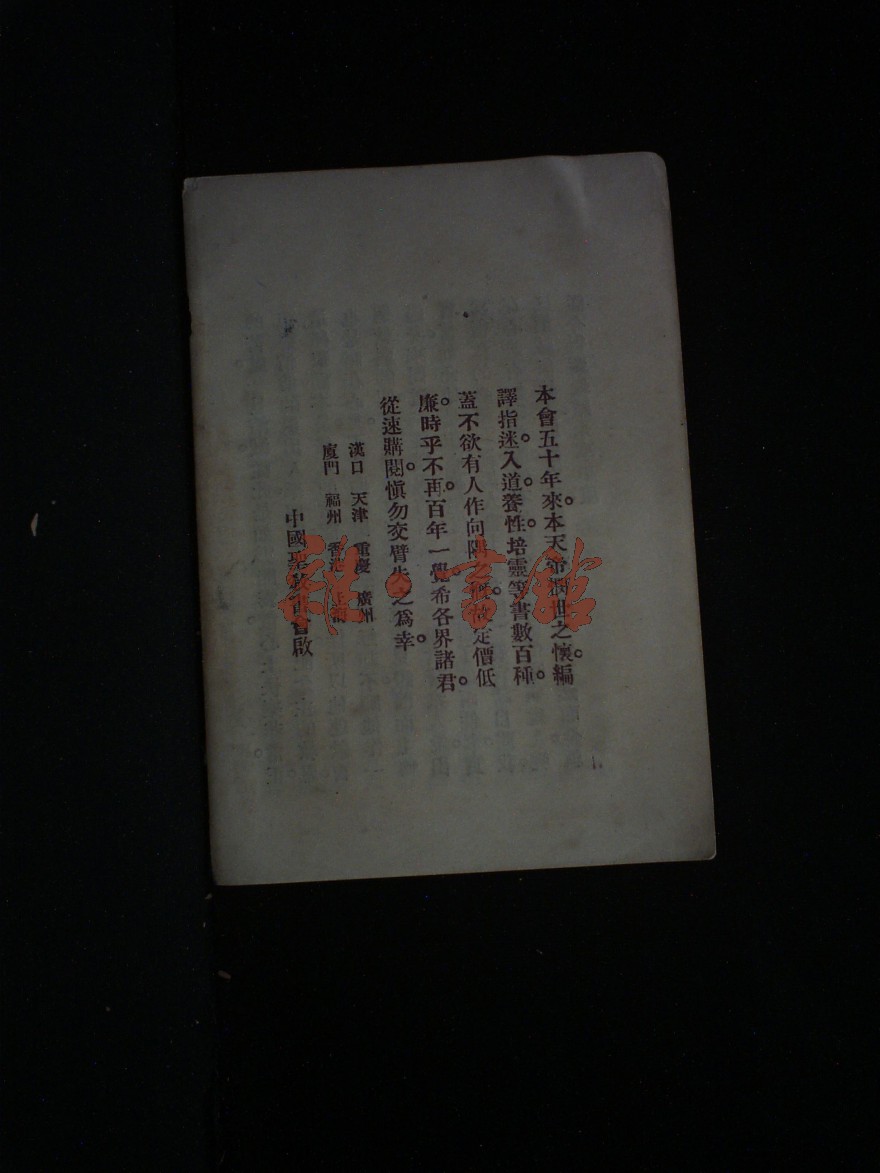 本會五十年來。本天帝世之懷。編
譯指迷。入道。養性。培靈等書數百種。
蓋不欲有人作向隅之故定價低
廉。時乎不再。百年一覺。希各界諸君。
從速購閱。愼勿交臂失之爲幸。
漢口 天津 重慶 廣州
廈門 福州 香港 上海
中國聖教書會啟
雜·書館